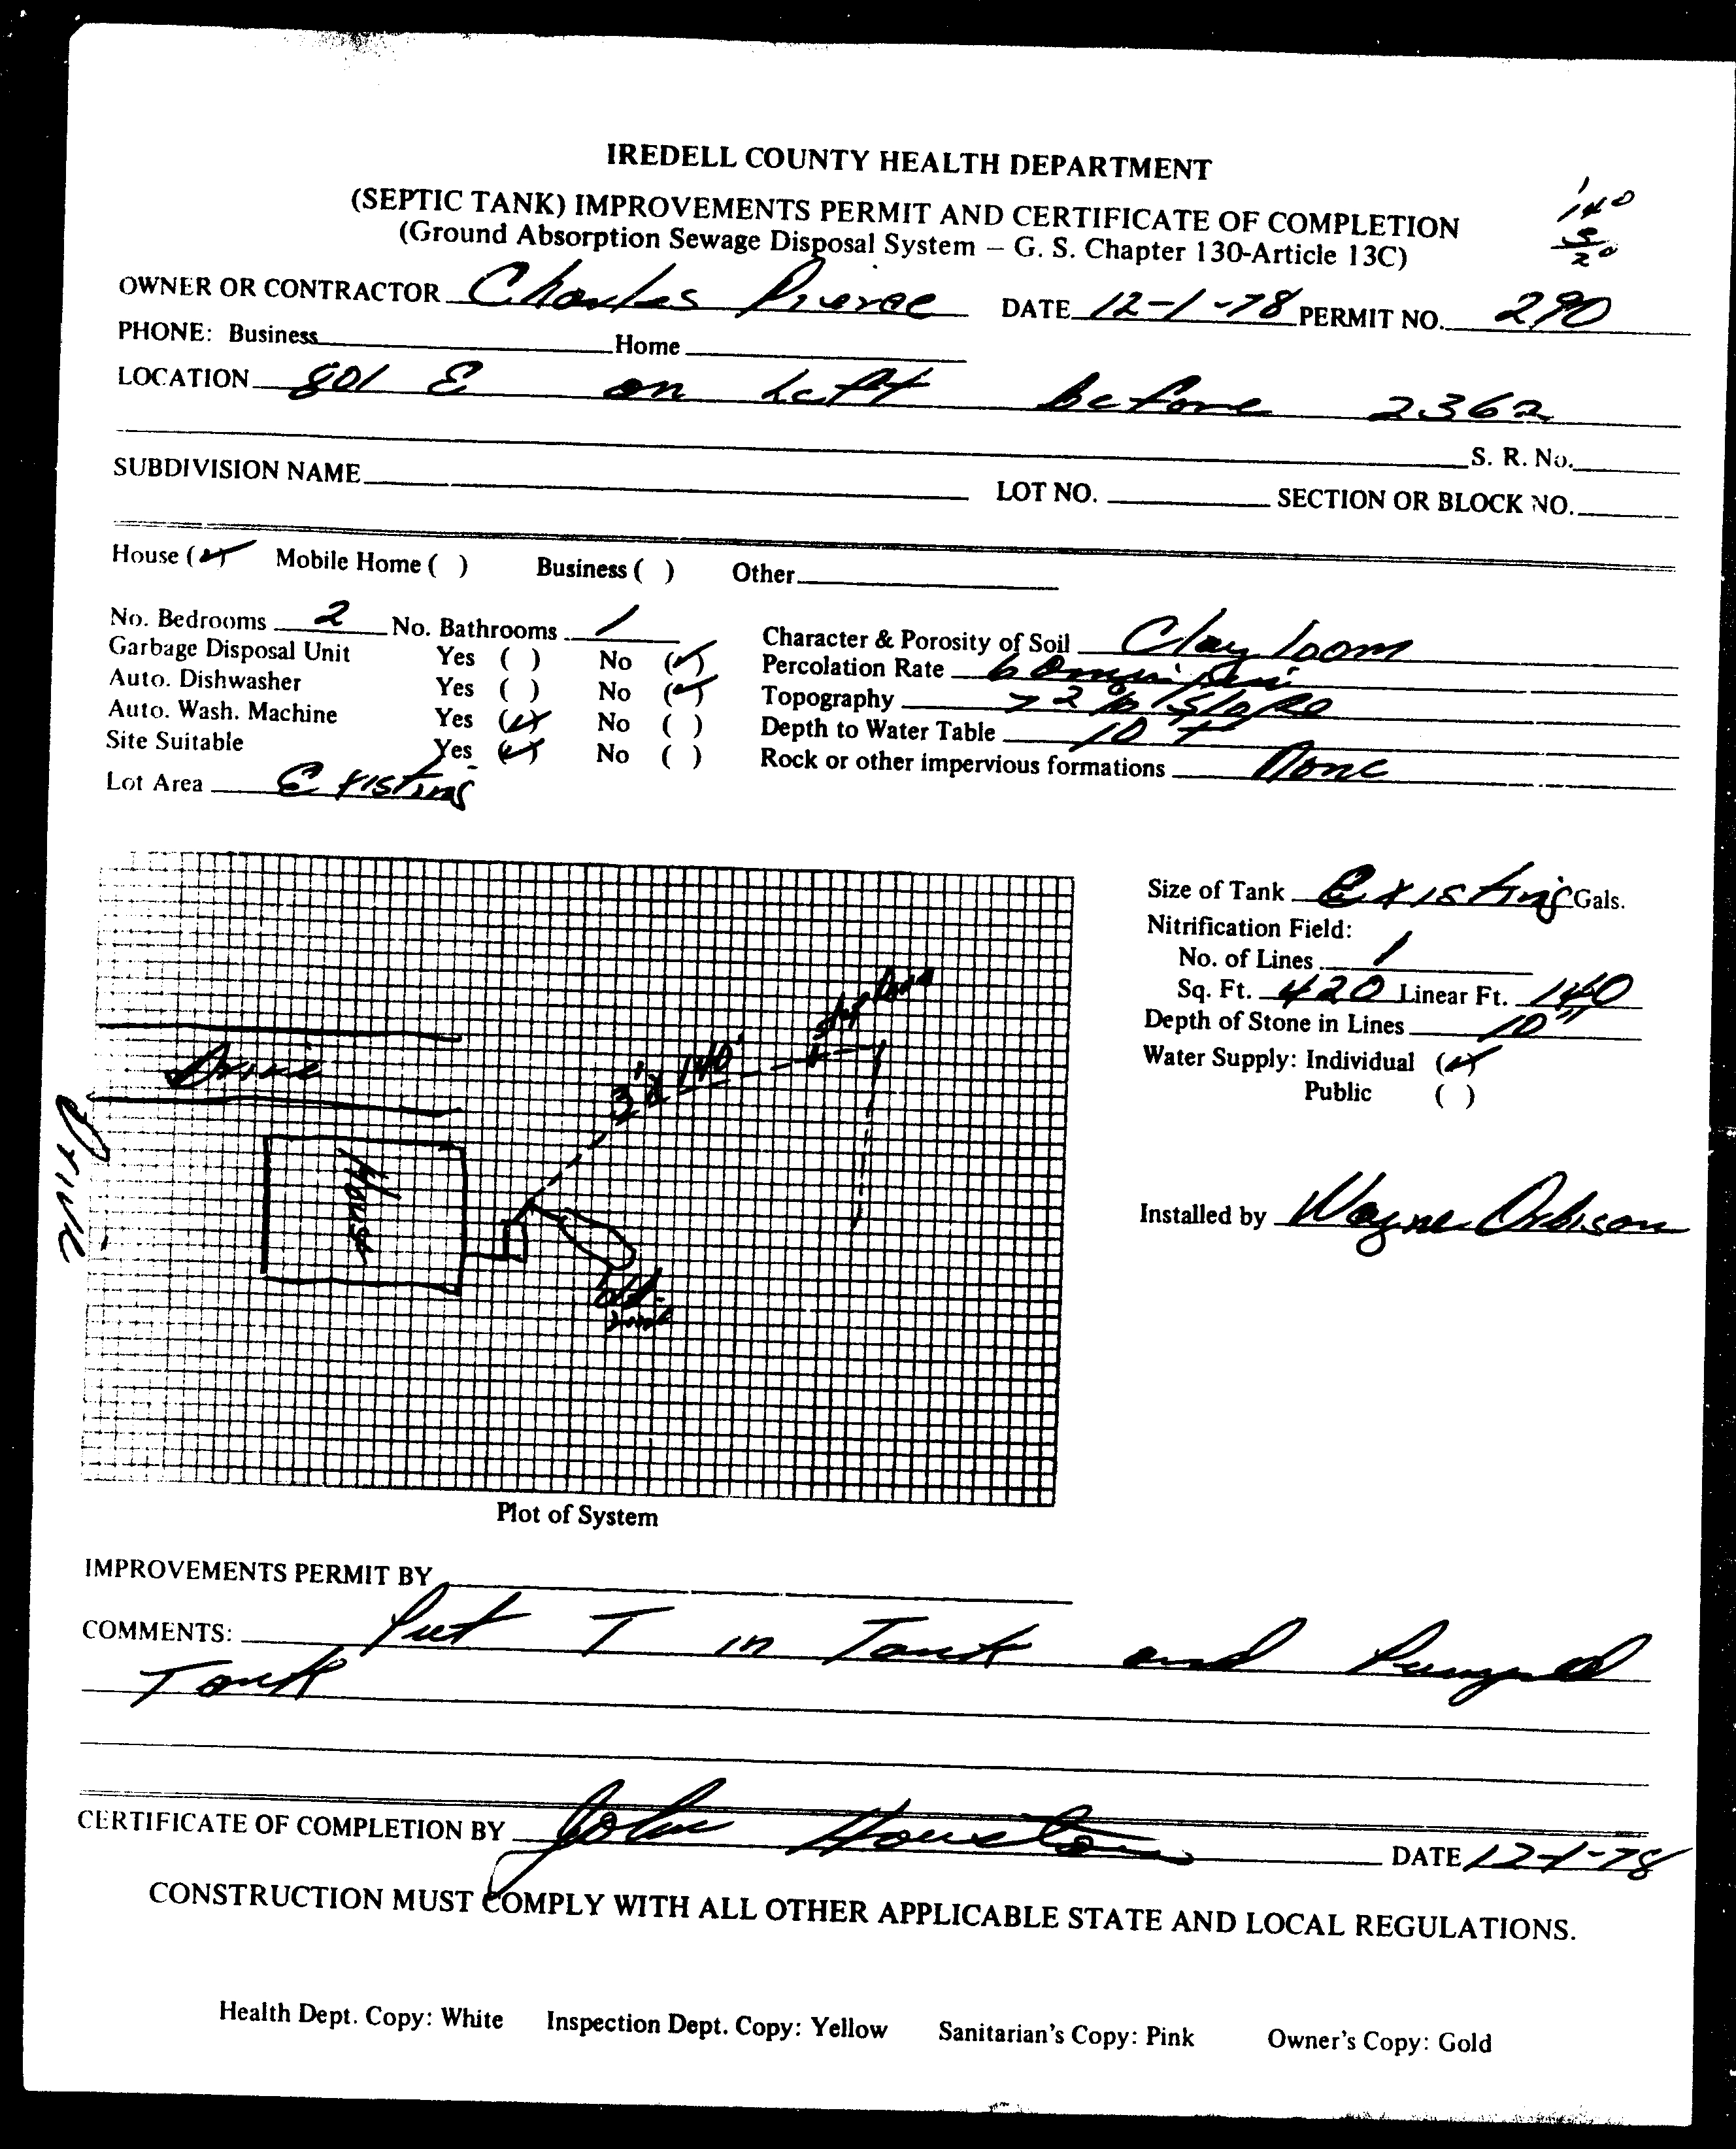 IREDELL COUNTY HEALTH DEPARTMENT
(SEPTIC TANK) IMPROVEMENTS PERMIT AND CERTIFICATE OF COMPLETION
(Ground Absorption Sewage Disposal System — G. S. Chapter 130-Article 13C)
140
OWNER OR CONTRACTOR Charles Pierce DATE 12-1-78 PERMIT NO. 290
PHONE: Business Home
LOCATION 801 E on Left before 2362
S. R. No.
SUBDIVISION NAME LOT NO. SECTION OR BLOCK NO.
House (✓) Mobile Home ( ) Business ( ) Other
No. Bedrooms 2 No. Bathrooms 1
Garbage Disposal Unit Yes ( ) No (✓)
Auto. Dishwasher Yes ( ) No (✓)
Auto. Wash. Machine Yes (✓) No ( )
Site Suitable Yes (✓) No ( )
Lot Area Existing
Character & Porosity of Soil Clay loom
Percolation Rate 60
Topography > 2 % Slope
Depth to Water Table 10 +
Rock or other impervious formations None
Size of Tank Existing Gals.
Nitrification Field:
No. of Lines 1
Sq. Ft. 420 Linear Ft. 140
Depth of Stone in Lines 10"
Water Supply: Individual (✓)
Public ( )
Installed by Wayne Orbison
Drive
3' x 140'
Drive
House
old
Plot of System
IMPROVEMENTS PERMIT BY
COMMENTS: Put T in Tank and Pumped
Tank
CERTIFICATE OF COMPLETION BY John Houston DATE 12-1-78
CONSTRUCTION MUST COMPLY WITH ALL OTHER APPLICABLE STATE AND LOCAL REGULATIONS.
Health Dept. Copy: White Inspection Dept. Copy: Yellow Sanitarian's Copy: Pink Owner's Copy: Gold